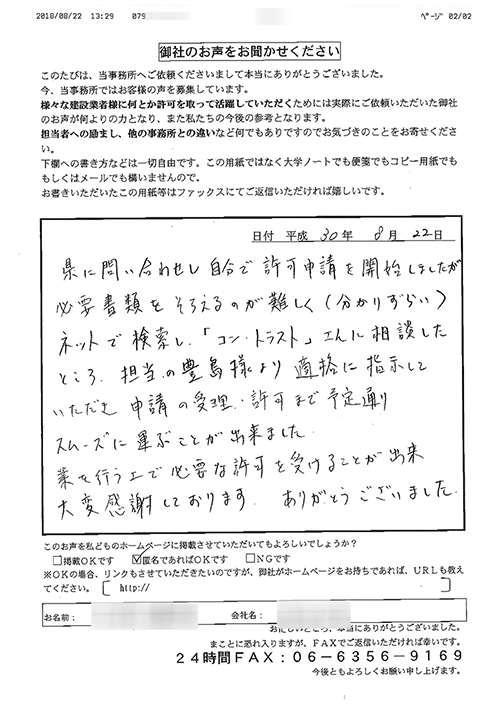 2018/08/22 13:29 079
ページ 02/02
御社のお声をお聞かせください
このたびは、当事務所へご依頼くださいまして本当にありがとうございました。
今、当事務所ではお客様の声を募集しています。
様々な建設業者様に何とか許可を取って活躍していただくためには実際にご依頼いただいた御社
のお声が何よりの力となり、また私たちの今後の参考となります。
担当者への励まし、他の事務所との違いなど何でもありですのでお気づきのことをお寄せくださ
い。
下欄への書き方などは一切自由です。この用紙ではなく大学ノートでも便箋でもコピー用紙でも
もしくはメールでも構いませんので。
お書きいただいたこの用紙等はファックスにてご返信いただければ嬉しいです。
日付 平成 30年 8月 22日
県に問い合わせし自分で許可申請を開始しましたが
必要書類をそろえるのが難しく(分かりずらい)
ネットで検索し、「コン・トラスト」さんに相談した
ところ、担当の豊島様より適格に指示して
いただき申請の受理・許可まで予定通り
スムーズに運ぶことが出来ました。
業を行う上で必要な許可を受けることが出来
大変感謝しております。ありがとうございました。
このお声を私どものホームページに掲載させていただいてもよろしいでしょうか?
□掲載OKです ☑匿名であればOKです □NGです
※OKの場合、リンクもさせていただきたいのですが、御社がホームページをお持ちであれば、URLも教え
てください。[ http:// ]
お名前: 会社名:
お忙しいところ、本当にありがとうございました。
まことに恐れ入りますが、FAXでご返信いただければ幸いです。
24時間FAX:06-6356-9169
今後ともよろしくお願い申し上げます。